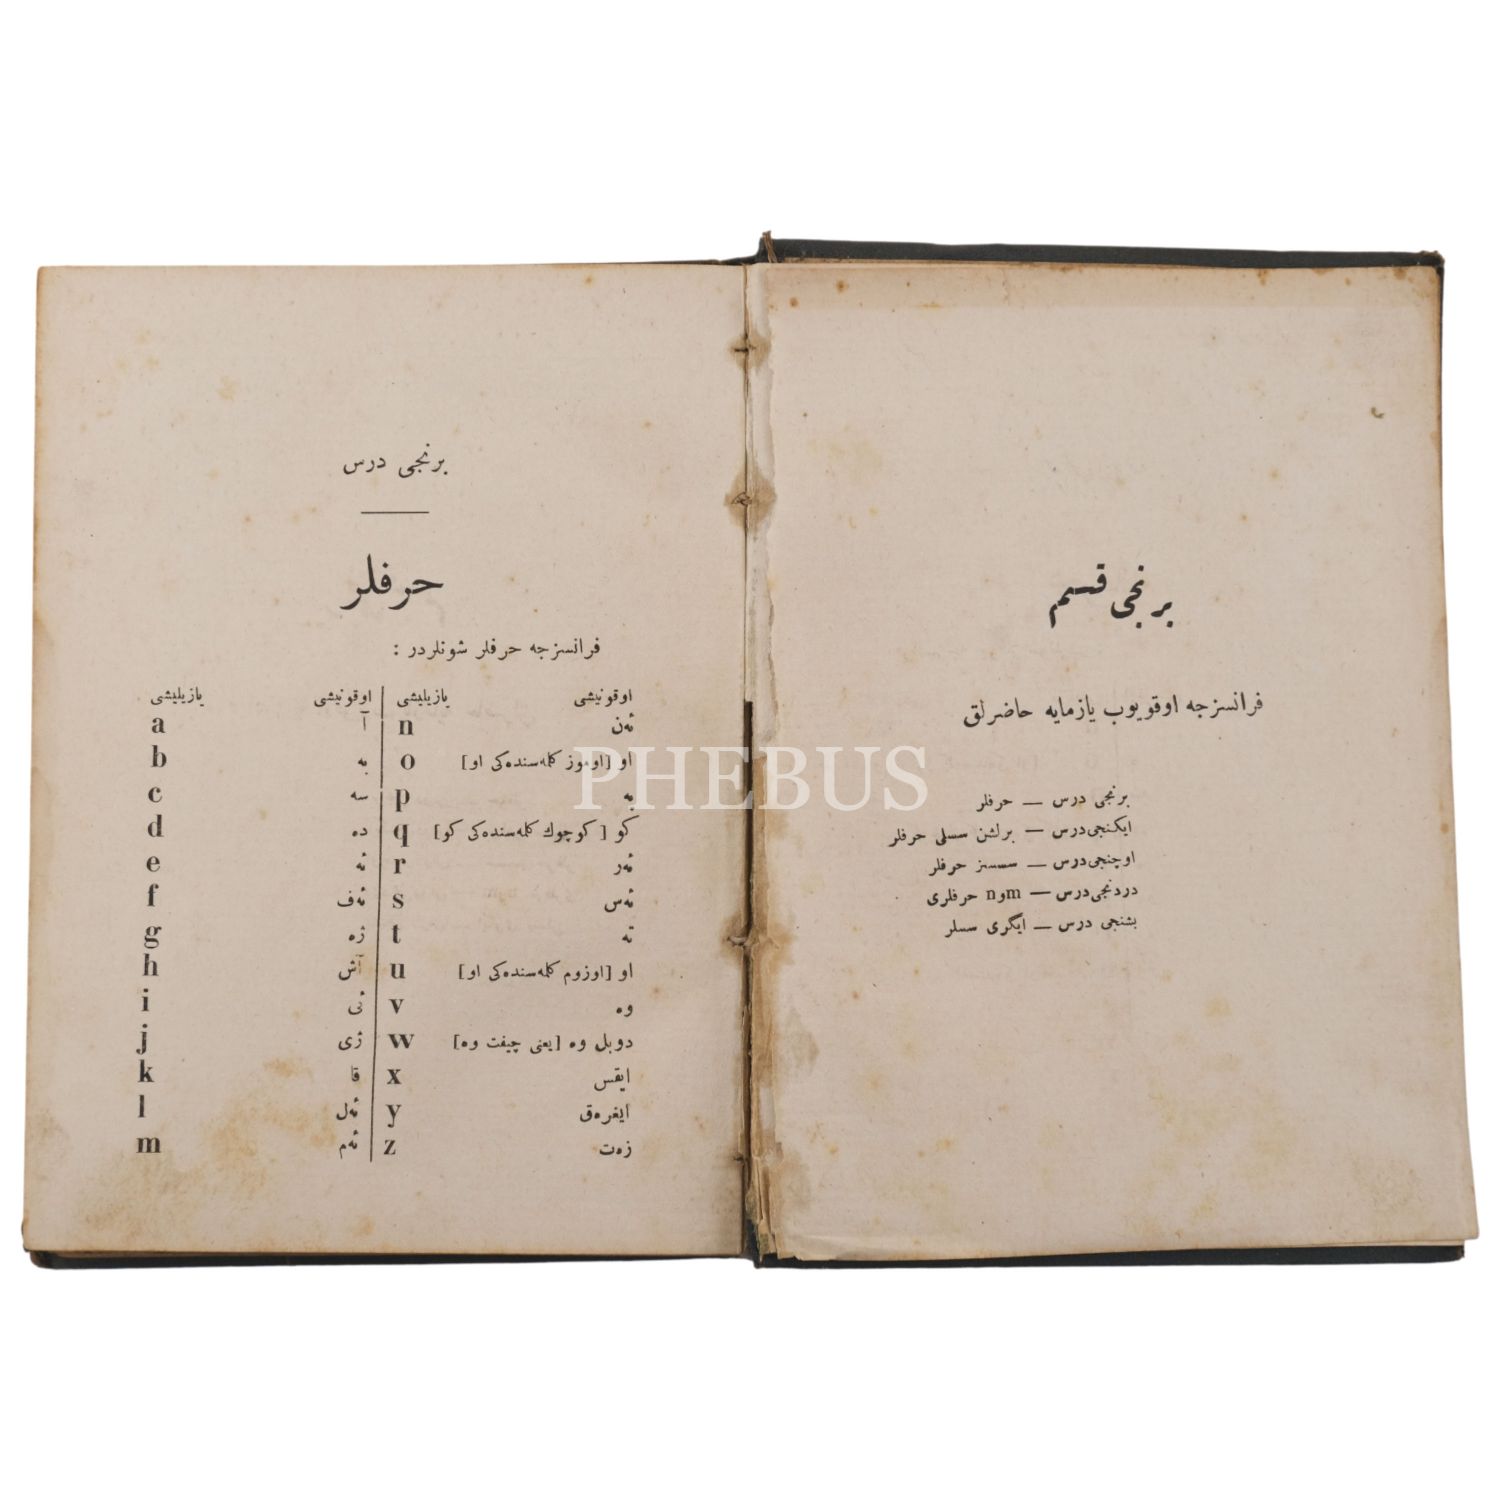 برنجی قسم
فرانسزجه اوقویوب یازمایه حاضرلق
برنجی درس — حرفلر
ایكنجی درس — برلشن سسلی حرفلر
اوچنجی درس — سسسز حرفلر
دردنجی درس — m و n حرفلری
بشنجی درس — ایگری سسلر
برنجی درس
حرفلر
فرانسزجه حرفلر شونلردر :
یازیلیشی اوقونیشی یازیلیشی اوقونیشی
a آ n ئەن
b بە o او [اوموز كلمەسندەكی او]
c سە p پە
d دە q كو [كوچوك كلمەسندەكی كو]
e ئە r ئەر
f ئەف s ئەس
g ژە t تە
h آش u او [اوزوم كلمەسندەكی او]
i ئی v وە
j ژی w دوبل وە [یعنی چیفت وە]
k قا x ایقس
l ئەل y ایغرەق
m ئەم z زەت
PHEBUS